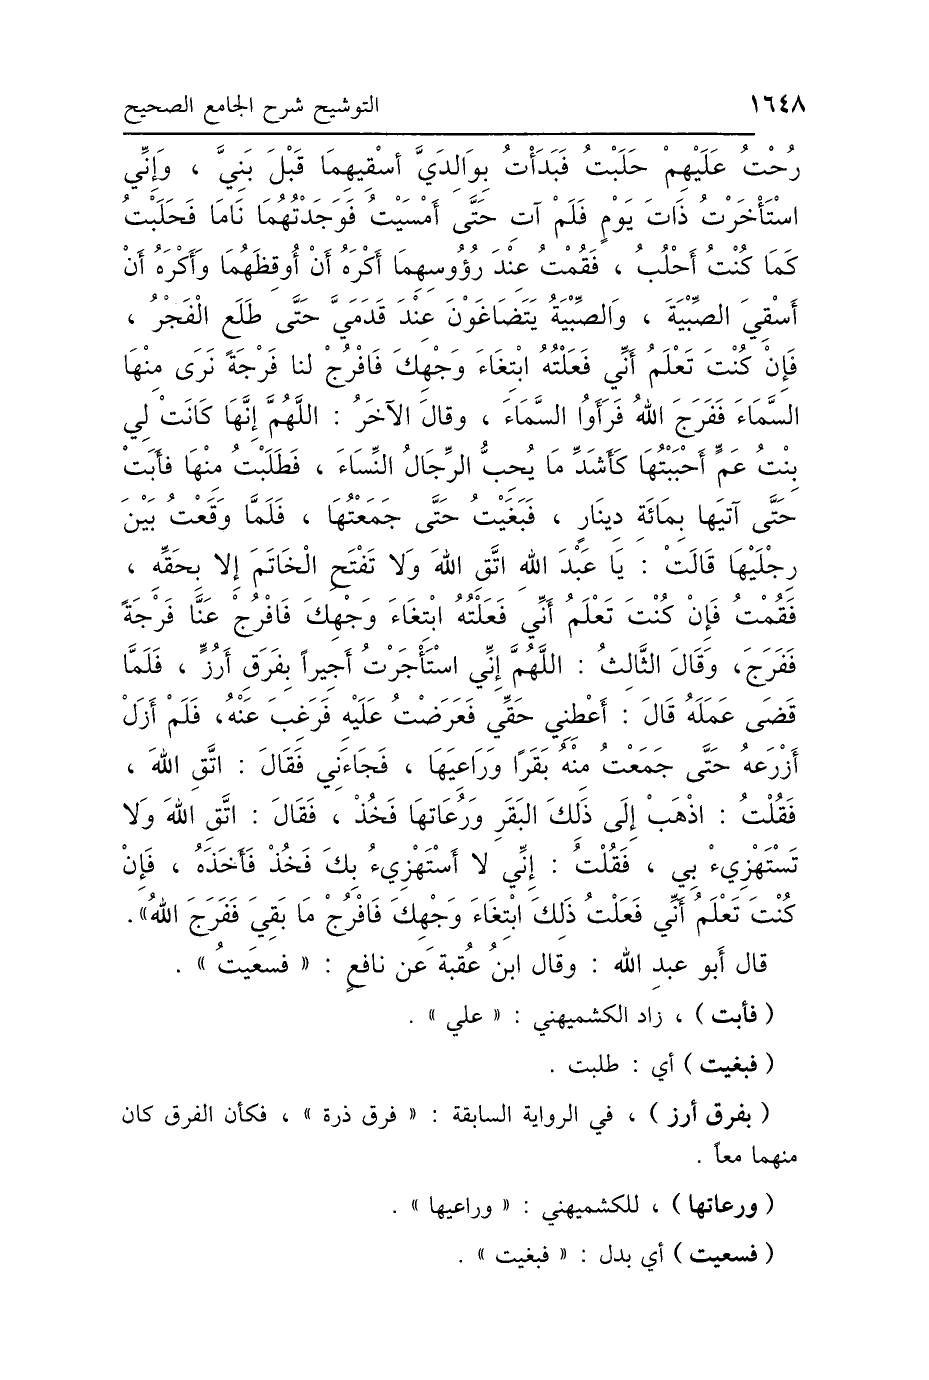 ١٦٤٨ التوشيح شرح الجامع الصحيح
رُحْتُ عَلَيْهِمْ حَلَبْتُ فَبَدَأْتُ بِوَالِدَيَّ أسْقِيهِمَا قَبْلَ بَنِيَّ ، وَإِنِّي
اسْتَأْخَرْتُ ذَاتَ يَوْمٍ فَلَمْ آتِ حَتَّى أَمْسَيْتُ فَوَجَدْتُهُمَا نَامَا فَحَلَبْتُ
كَمَا كُنْتُ أَحْلُبُ ، فَقُمْتُ عِنْدَ رُؤُوسِهِمَا أَكْرَهُ أَنْ أُوقِظَهُمَا وَأَكْرَهُ أَنْ
أَسْقِيَ الصِّبْيَةَ ، وَالصِّبْيَةُ يَتَضَاغَوْنَ عِنْدَ قَدَمَيَّ حَتَّى طَلَعَ الْفَجْرُ ،
فَإِنْ كُنْتَ تَعْلَمُ أَنِّي فَعَلْتُهُ ابْتِغَاءَ وَجْهِكَ فَافْرُجْ لنا فَرْجَةً نَرَى مِنْهَا
السَّمَاءَ فَفَرَجَ اللهُ فَرَأَوُا السَّمَاءَ ، وقالَ الآخَرُ : اللَّهُمَّ إِنَّهَا كَانَتْ لِي
بِنْتُ عَمٍّ أَحْبَبْتُهَا كَأَشَدِّ مَا يُحِبُّ الرِّجَالُ النِّسَاءَ ، فَطَلَبْتُ مِنْهَا فأبَتْ
حَتَّى آتيَها بِمَائَةِ دِينَارٍ ، فَبَغَيْتُ حَتَّى جَمَعْتُهَا ، فَلَمَّا وَقَعْتُ بَيْنَ
رِجْلَيْهَا قَالَتْ : يَا عَبْدَ اللهِ اتَّقِ اللهَ وَلا تَفْتَحِ الْخَاتَمَ إِلا بِحَقِّهِ ،
فَقُمْتُ فَإِنْ كُنْتَ تَعْلَمُ أَنِّي فَعَلْتُهُ ابْتِغَاءَ وَجْهِكَ فَافْرُجْ عَنَّا فَرْجَةً
فَفَرَجَ، وَقَالَ الثَّالِثُ : اللَّهُمَّ إِنِّي اسْتَأْجَرْتُ أَجِيراً بِفَرَقِ أَرُزٍّ ، فَلَمَّا
قَضَى عَمَلَهُ قَالَ : أَعْطِنِي حَقِّي فَعَرَضْتُ عَلَيْهِ فَرَغِبَ عَنْهُ، فَلَمْ أزَلْ
أَزْرَعهُ حَتَّى جَمَعْتُ مِنْهُ بَقَرًا وَرَاعِيَهَا ، فَجَاءَنِي فَقَالَ : اتَّقِ اللهَ ،
فَقُلْتُ : اذْهَبْ إِلَى ذَلِكَ البَقَرِ وَرُعَاتهَا فَخُذْ ، فَقَالَ : اتَّقِ اللهَ وَلا
تَسْتَهْزِيءْ بِي ، فَقُلْتُ : إِنِّي لا أَسْتَهْزِيءُ بِكَ فَخُذْ فَأَخَذَهُ ، فَإِنْ
كُنْتَ تَعْلَمُ أَنِّي فَعَلْتُ ذَلِكَ ابْتِغَاءَ وَجْهِكَ فَافْرُجْ مَا بَقِيَ فَفَرَجَ اللهُ» .
قال أَبو عبدِ الله : وقال ابنُ عُقبة عَن نافعٍ : « فسعَيتُ » .
( فأبت ) ، زاد الكشميهني : « علي » .
( فبغيت ) أي : طلبت .
( بفرق أرز ) ، في الرواية السابقة : « فرق ذرة » ، فكأن الفرق كان
منهما معاً .
( ورعاتها ) ، للكشميهني : « وراعيها » .
( فسعيت ) أي بدل : « فبغيت » .